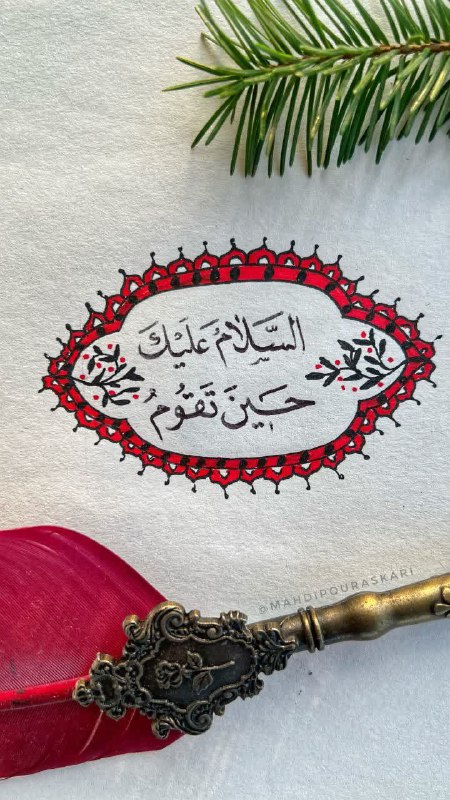 السَّلَامُ عَلَيْكَ
حِينَ تَقُومُ
@MAHDIPOURASKARI